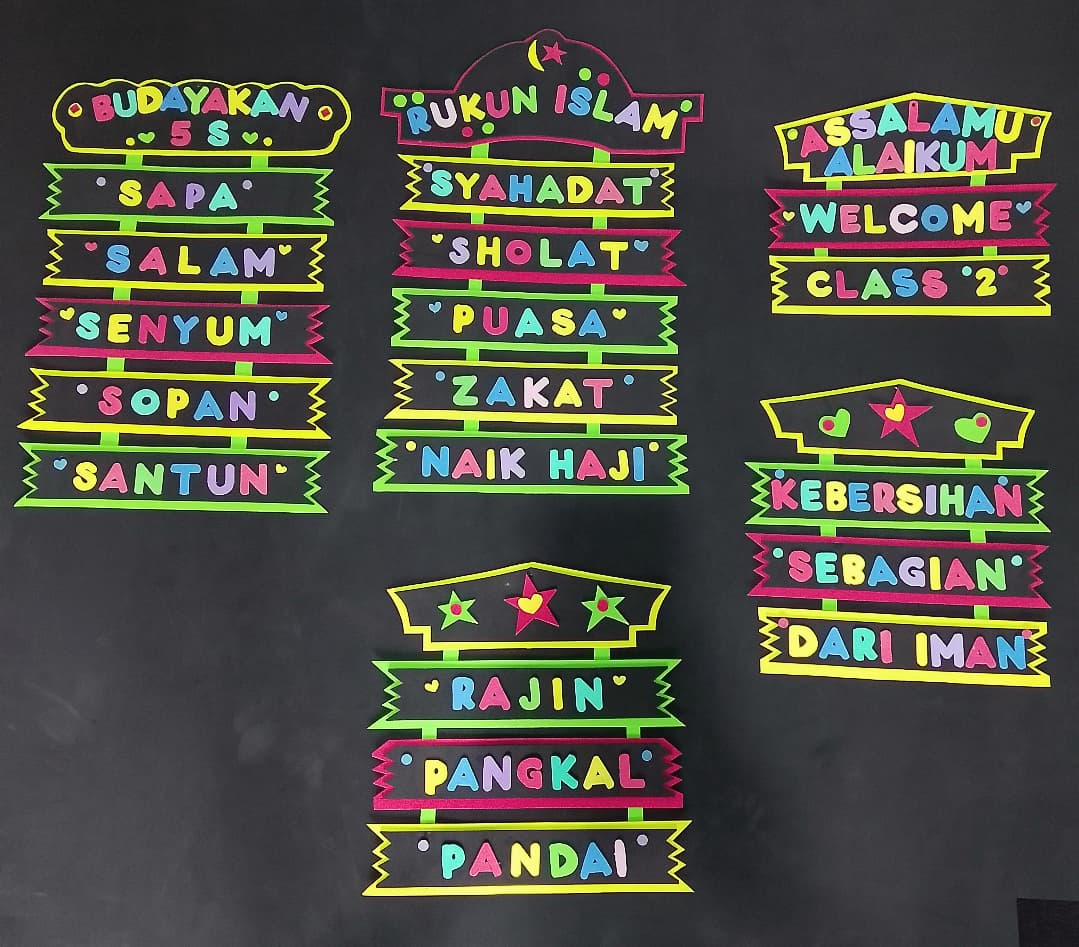 BUDAYAKAN
5 S
SAPA
SALAM
SENYUM
SOPAN
SANTUN
RUKUN ISLAM
SYAHADAT
SHOLAT
PUASA
ZAKAT
NAIK HAJI
ASSALAMU
ALAIKUM
WELCOME
CLASS 2
KEBERSIHAN
SEBAGIAN
DARI IMAN
RAJIN
PANGKAL
PANDAI